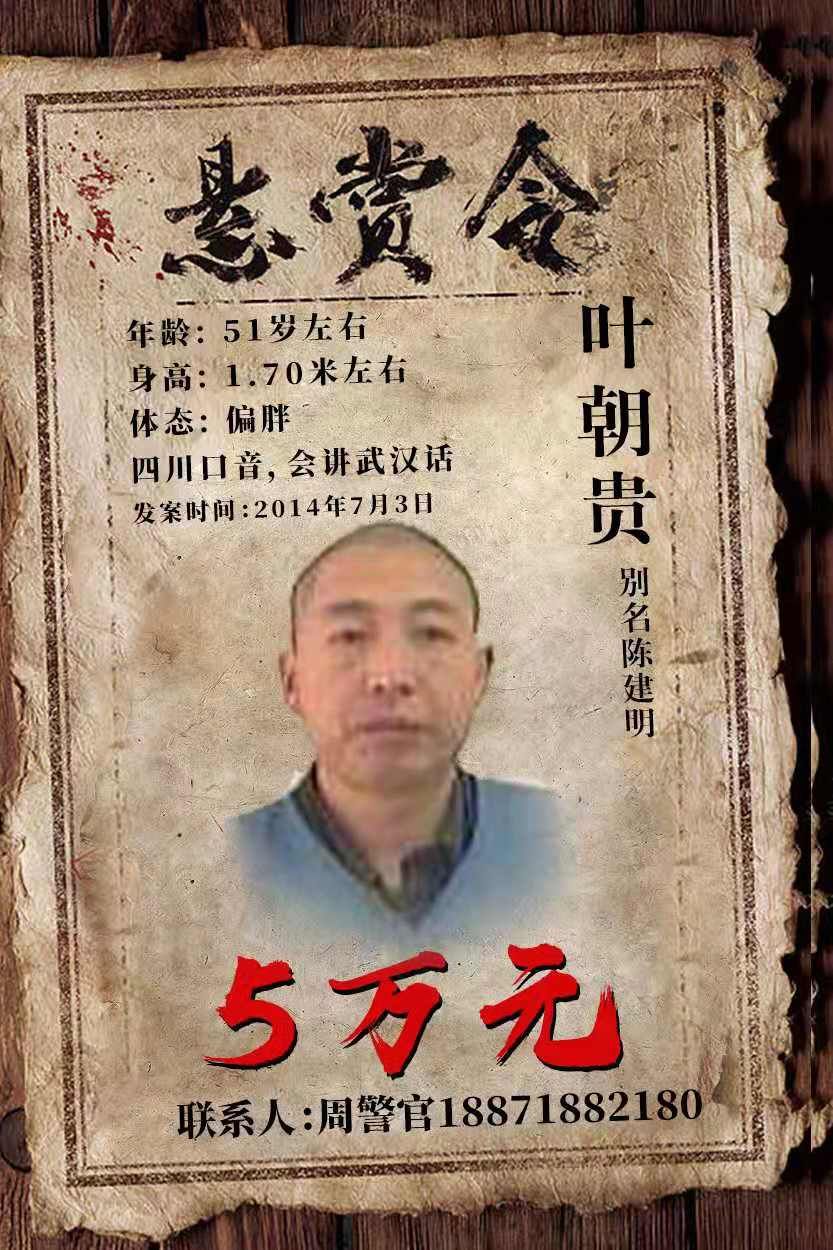 悬赏令
年龄：51岁左右
身高：1.70米左右
体态：偏胖
四川口音，会讲武汉话
发案时间:2014年7月3日
叶朝贵
别名陈建明
5万元
联系人:周警官18871882180